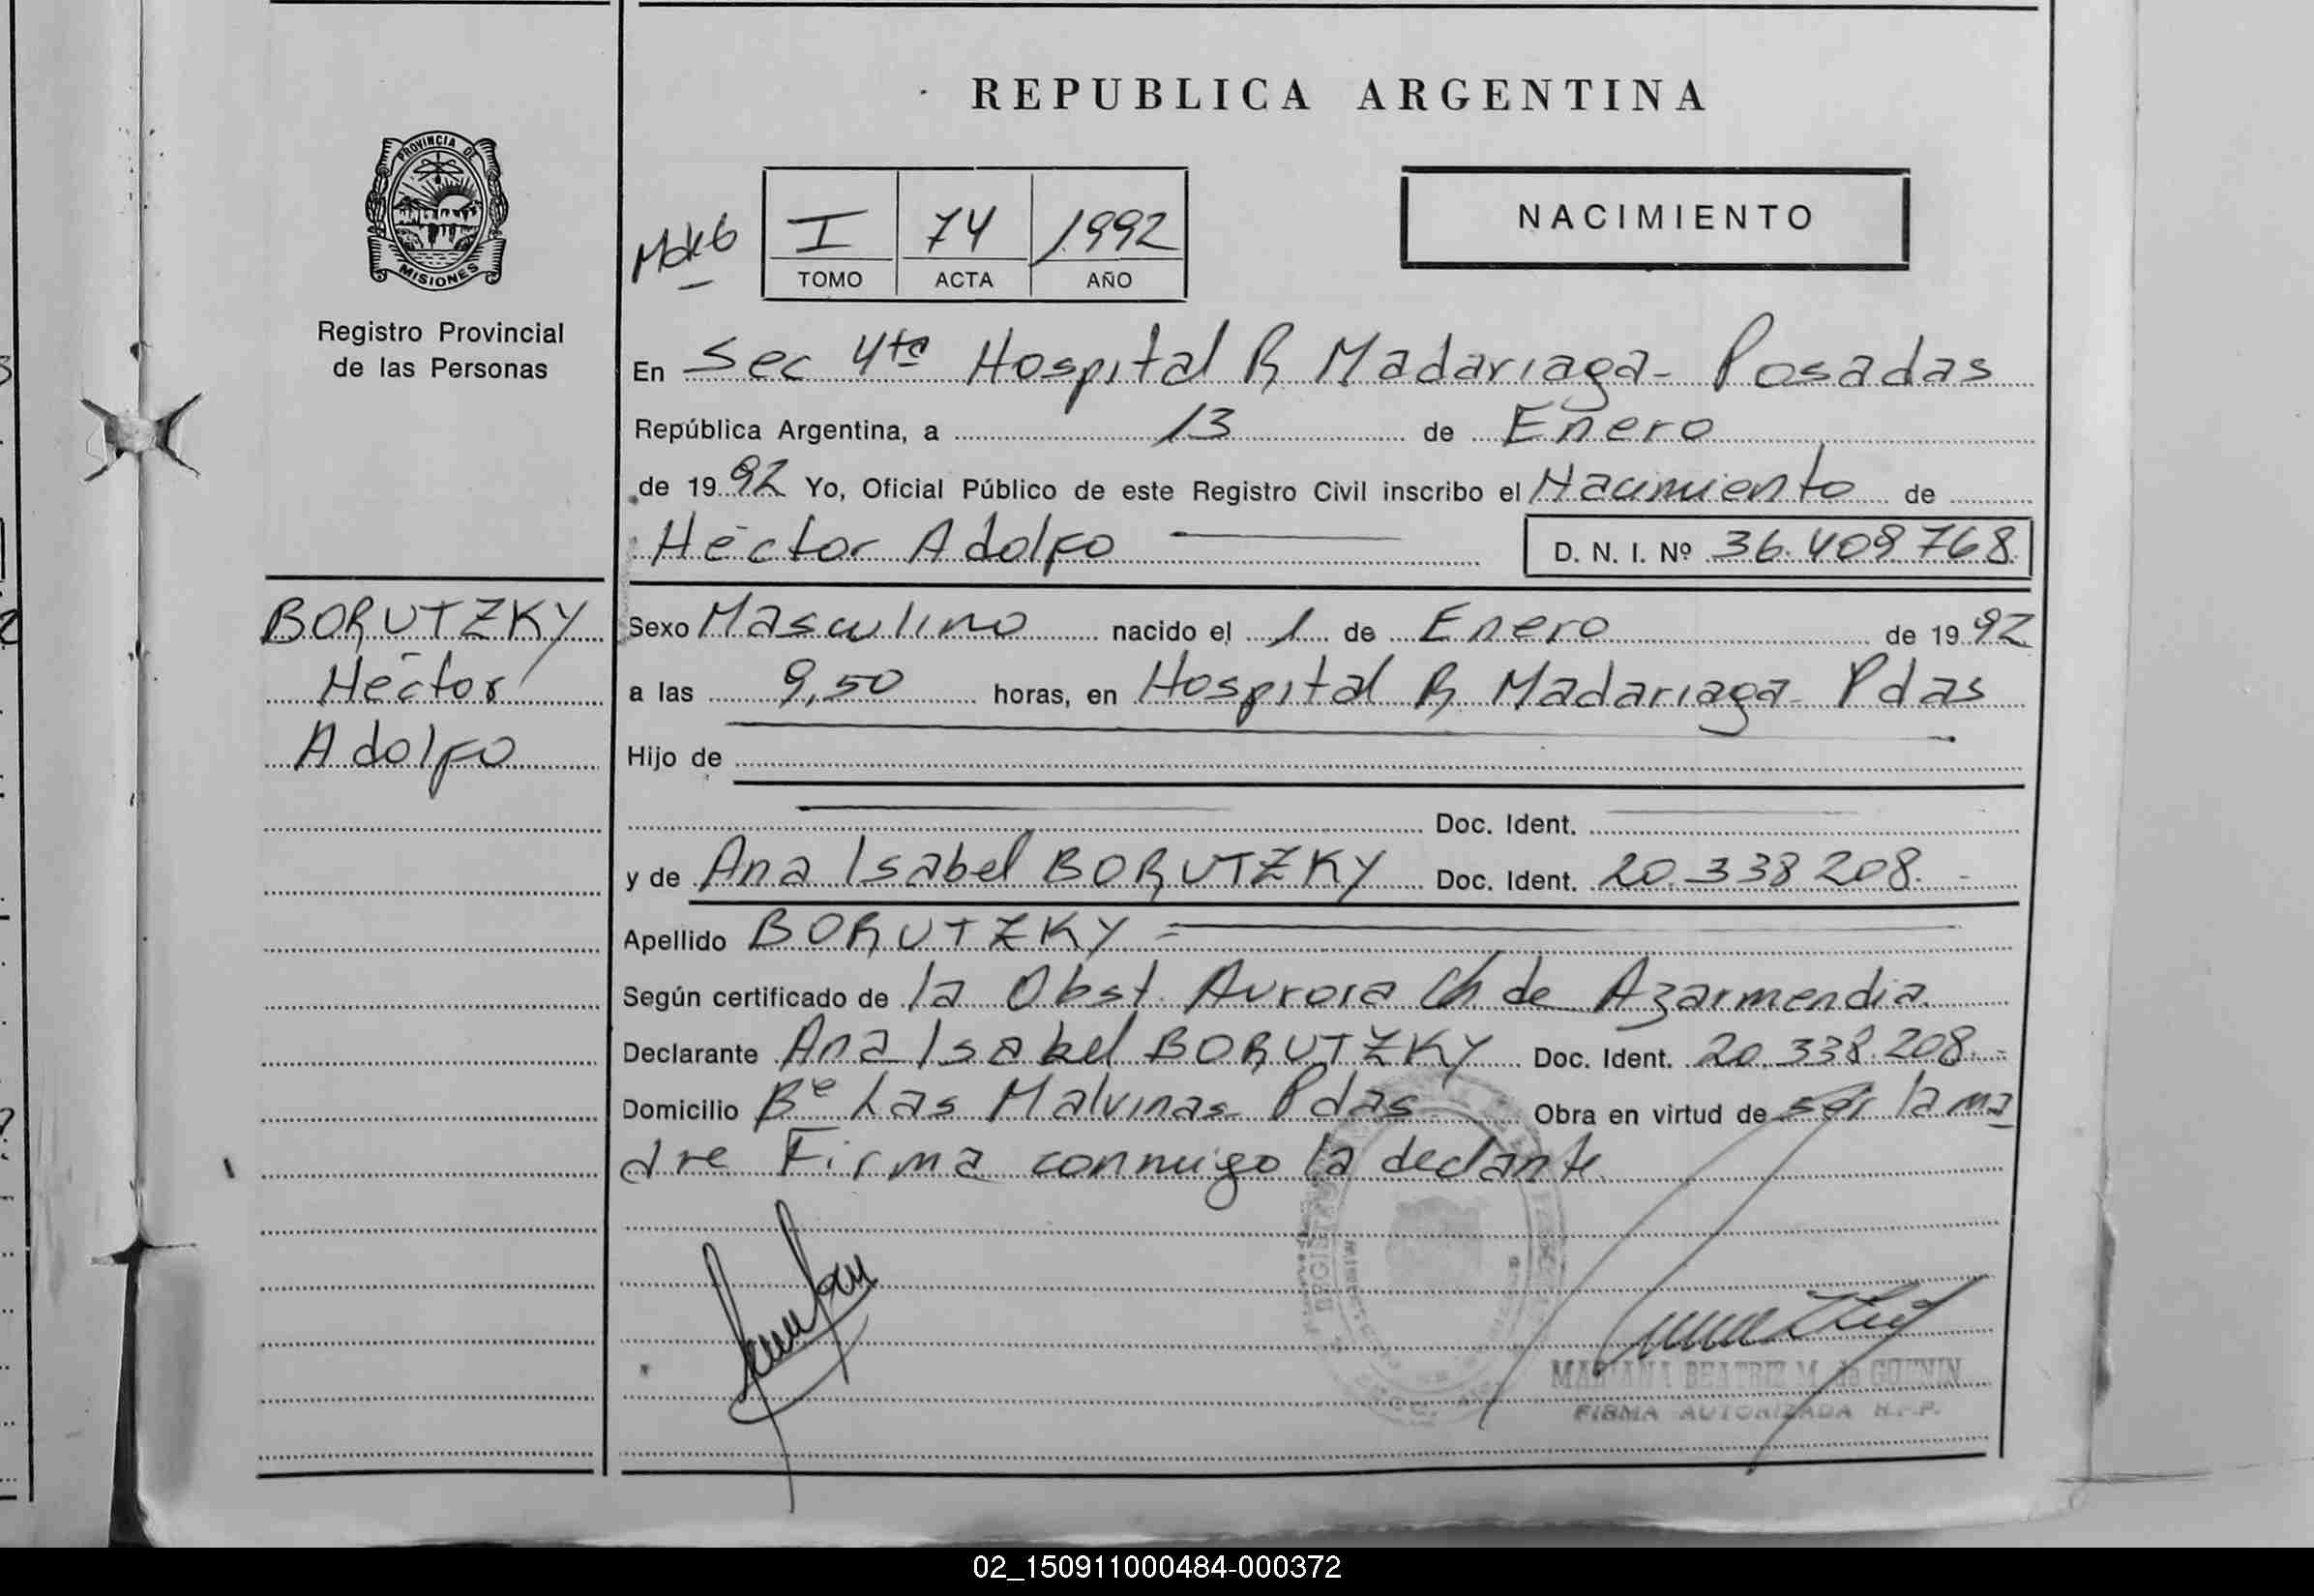 REPUBLICA ARGENTINA
PROVINCIA DE
MISIONES
Registro Provincial
de las Personas
NACIMIENTO
I 74 1992
TOMO ACTA AÑO
En Sec 4ta Hospital R Madariaga - Posadas
República Argentina, a 13 de Enero
de 1992 Yo, Oficial Público de este Registro Civil inscribo el Nacimiento de
Héctor Adolfo D. N. I. Nº 36.409.768
BORUTZKY
Héctor
Adolfo
Sexo Masculino nacido el 1 de Enero de 1992
a las 9,50 horas, en Hospital R Madariaga - Pdas
Hijo de
Doc. Ident.
y de Ana Isabel BORUTZKY Doc. Ident. 20.338.208.-
Apellido BORUTZKY =
Según certificado de la Obst. Aurora Ch de Azarmendia
Declarante Ana Isabel BORUTZKY Doc. Ident. 20.338.208.-
Domicilio Bº Las Malvinas - Pdas Obra en virtud de ser la ma
dre Firma conmigo la declante
MARIANA BEATRIZ M. de GUENIN
FIRMA AUTORIZADA R.P.P.
02_150911000484-000372